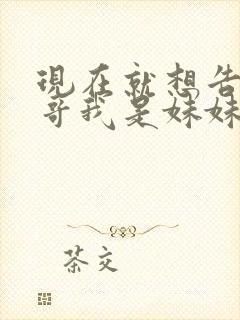 現在就想告
哥我是妹妹
茶交